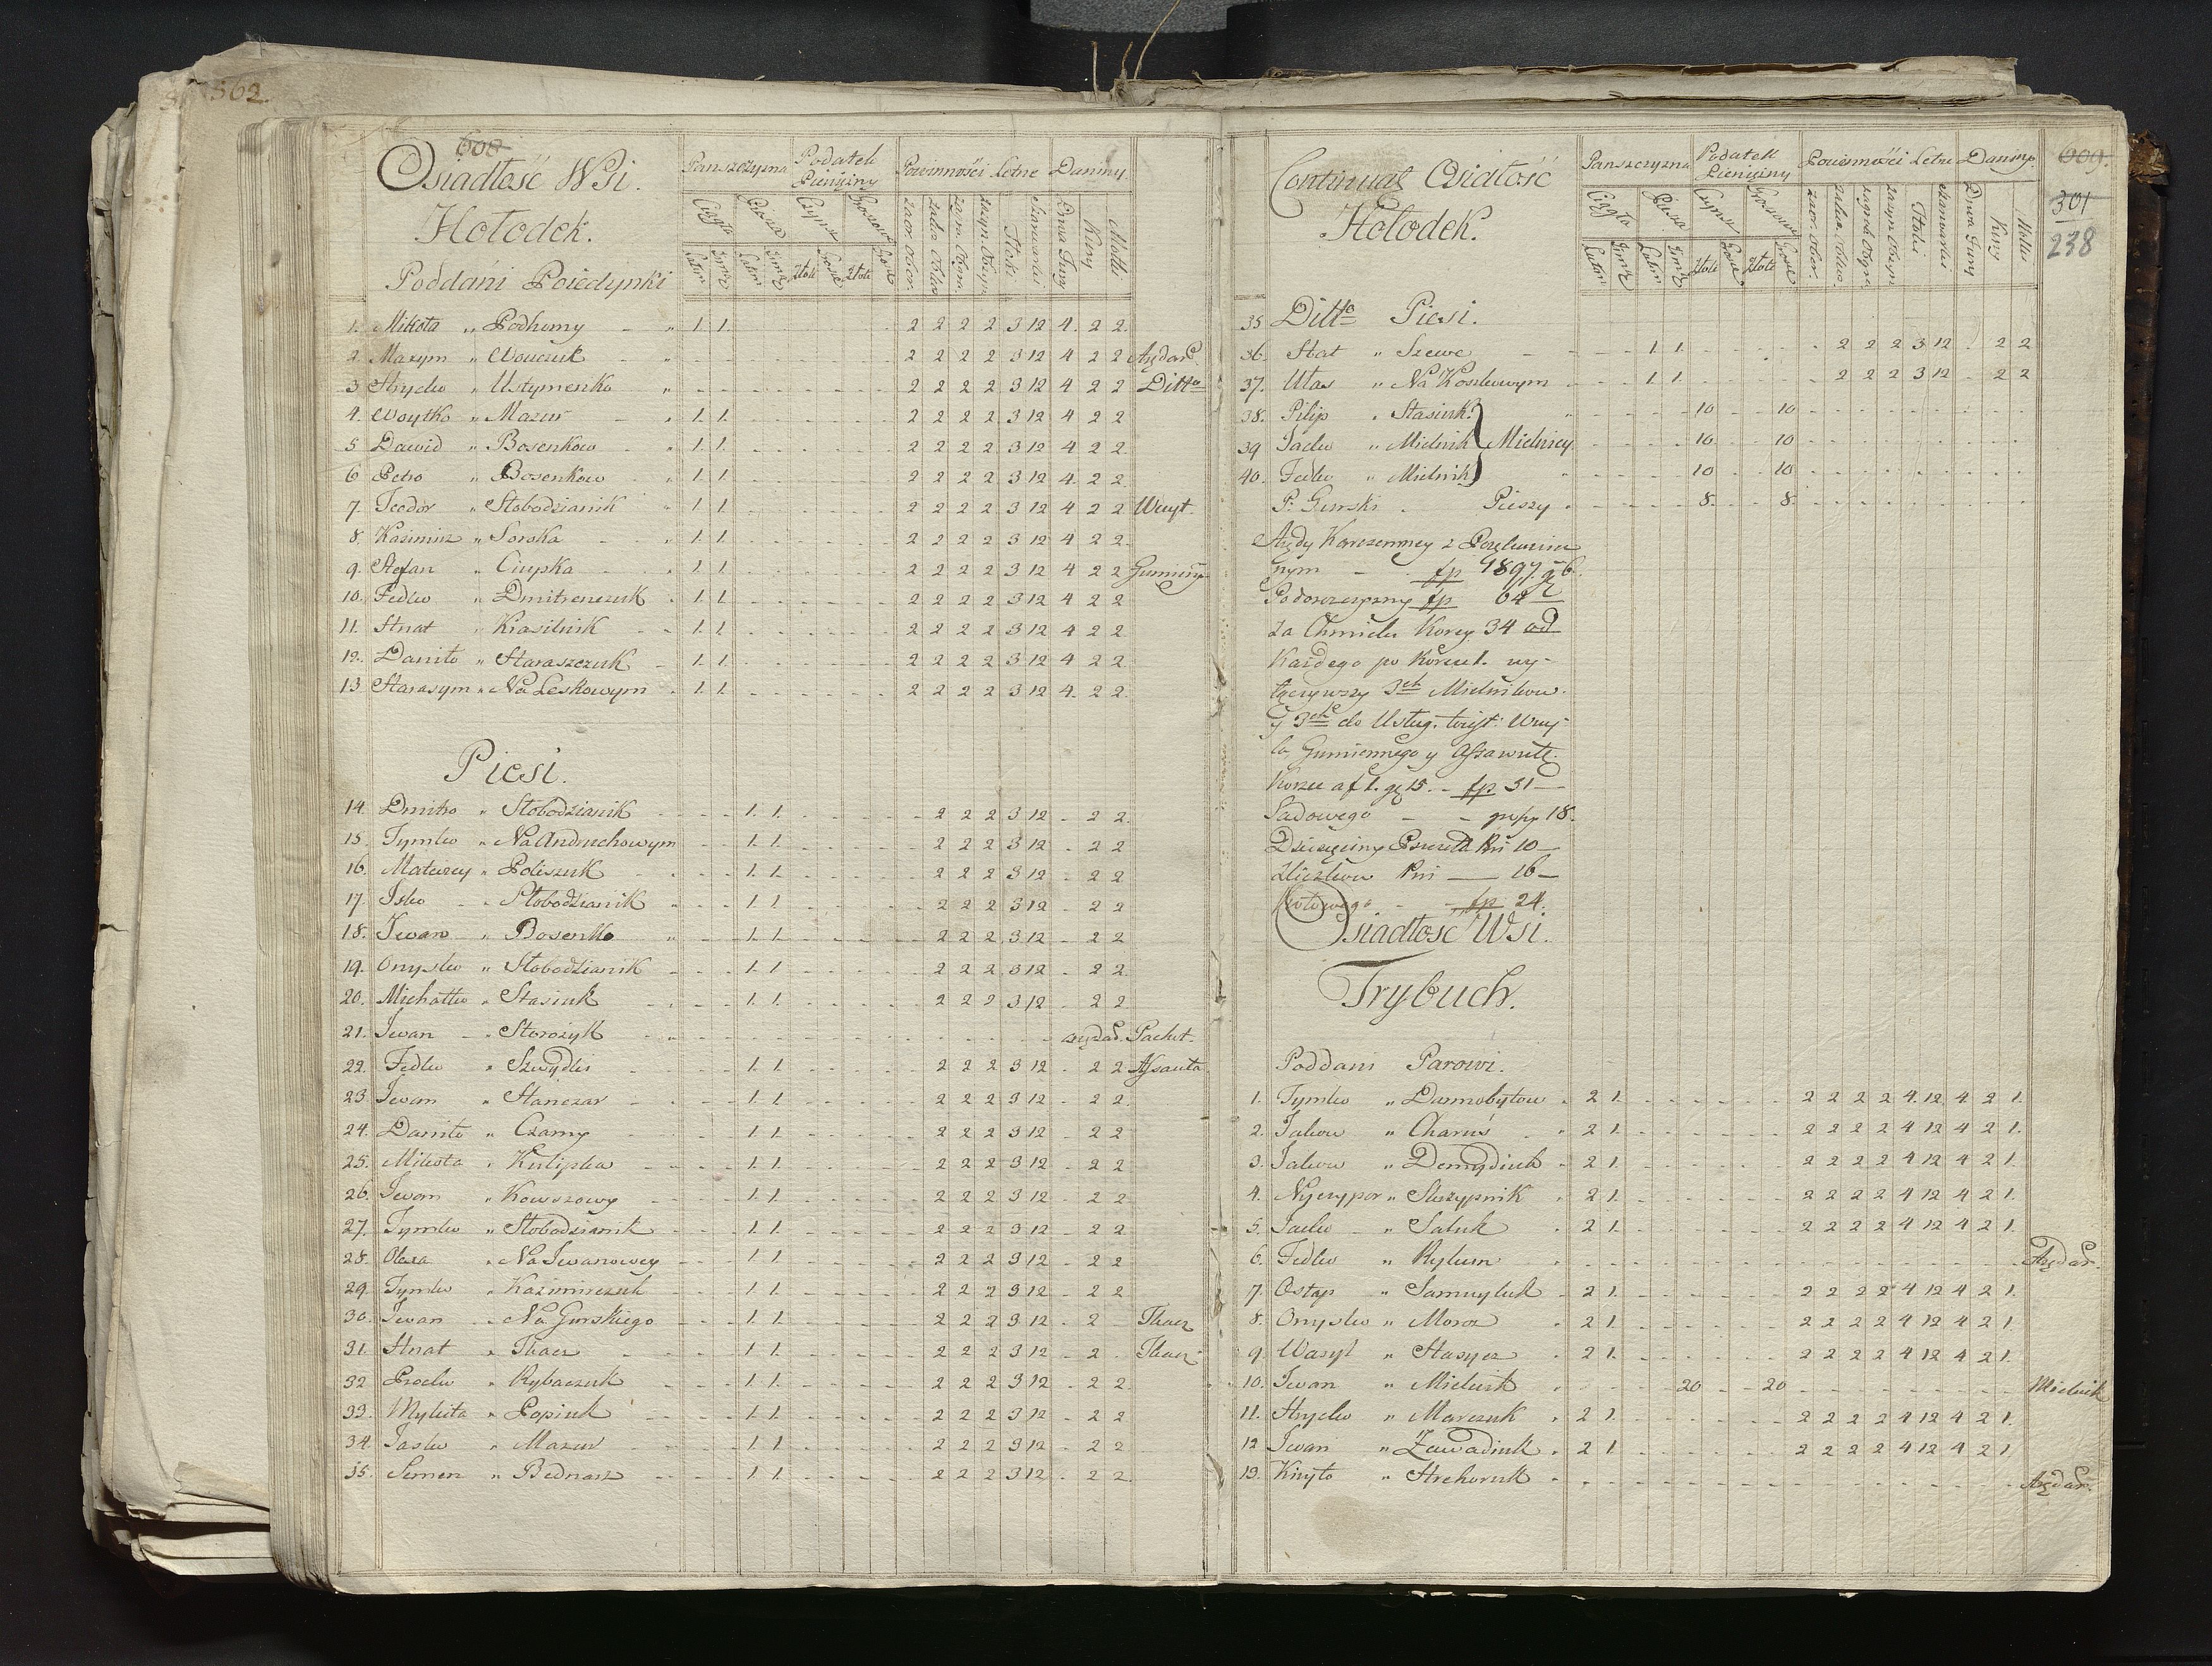 562.
608
Osiadłość Wsi.
Hołodek.
Poddani Poiedynki
Panszczyzna Podatek Pieniężny Powinności Letne Daniny
Ciągła Piesza Czynsz
Zlote Zlote
Stoki Drwa Fury Kury Motki
1. Mikoła " Podhorny 1. 1. 2 2 2 2 3 12 4. 2 2.
2. Maxym " Woyczuk 2 2 2 2 3 12 4 2 2 Arędarz
3 Hrycko " Ustymenko 2 2 2 2 3 12 4 2 2 Ditto
4. Woytko " Mazur 1. 1. 2 2 2 2 3 12 4 2 2
5 Dawid " Bosenkow 1. 1. 2 2 2 2 3 12 4 2 2.
6 Petro " Bosenkow 1. 1 2 2 2 2 3 12 4. 2 2.
7. Teodor " Słobodzianik 1. 1 2 2 2 2 3 12 4 2 2 Wuyt.
8. Kazimirz " Soroka 1. 1 2 2 2 2 3 12 4 2 2.
9. Stefan " Ciupka 1. 1 2 2 2 2 3 12 4 2 2 Gumięny
10. Fedko " Dmitrenczuk 1. 1 2 2 2 2 3 12 4 2 2
11. Hnat " Krasilnik 1. 1 2 2 2 2 3 12 4 2 2
12. Daniło " Haraszczuk 1. 1. 2 2 2 2 3 12 4 2 2
13 Harasym " Na Leskowym 1. 1 2 2 2 2 3 12 4. 2 2.
Piesi.
14. Dmitro " Słobodzianik 1. 1. 2 2 2 3 12 2 2.
15. Tymko " Na Andruchowym 1. 1. 2 2 2 3 12 2 2
16. Matwiey " Poliszuk 1. 1. 2 2 2 3 12 2 2
17. Jsko " Słobodzianik 1. 1 2 2 2 3 12 2 2
18. Jwan " Bosenko 1. 1. 2 2 2 3 12 2 2
19. Onysko " Słobodzianik 1. 1 2 2 2 3 12 2 2.
20. Michałko " Stasiuk 1. 1. 2 2 2 3 12 2 2
21. Jwan " Storożyk aręda. Pacht.
22. Fedko " Szwydki 1. 1. 2 2 2 3 12 2 2 Assauła
23. Jwan " Hanczar 1. 1 2 2 2 3 12 2 2.
24. Daniło " Czarny 1. 1 2 2 2 3 12 2 2
25. Mikoła " Kulipka 1. 1. 2 2 2 3 12 2 2
26. Jwan " Kowszowy 1. 1. 2 2 2 3 12 2 2
27. Tymko " Słobodzianik 1. 1. 2 2 2 3 12 2 2
28. Olexa " Na Jwanowey 1. 1 2 2 2 3 12 2 2
29. Tymko " Kazimirczuk 1. 1 2 2 2 3 12 2 2
30. Jwan " Na Gurskiego 1. 1 2 2 2 3 12 2 Tkacz
31. Hnat " Tkacz 1. 1 2 2 2 3 12 2 Tkacz
32 Procko " Rybaczuk 1. 1. 2 2 2 3 12 2 2.
33. Mykita " Popiuk 1. 1 2 2 2 3 12 2 2
34 Jasko " Mazur 1. 1 2 2 2 3 12 2 2
35. Semen " Bednarz 1. 1 2 2 2 3 12 2 2.
609.
301
238
Continuat Osiałość
Hołodek.
Panszczyzna Podatek Pieniężny Powinności Letne Daniny
Ciągła Piesza Czynsz
Stoki Drwa Fury Kury Motki
35 Ditto Piesi.
36. Hnat " Szewc 1. 1. 2 2 2 3 12 2 2
37. Ułas " Na Koszlowym 1. 1 2 2 2 3 12 2 2
38. Pilip " Stasiuk 10 10
39 Jacko " Mielnik Mielnicy 10 10
40. Fedko " Mielnik 10 10
P. Gurski Pieszy 8. 8.
Arędy Karczemney z
nym fp 4897. g 6.
fp 64
Za Chmielu Korcy 34 od
Każdego po Korcu 1. wy-
łączywszy 3ch Mielnikow
y 3ch do Usług. toiest: Wuy-
ta Gumiennego y Assawułę.
Korzec a f 1. g 15. fp 51
Sadowego 18.
Dziesięciny Pni 10
Pni 16
fp 24.
Osiadłość Wsi.
Trybuch.
Poddani Parowi.
1. Tymko " Darmobytow 2 1. 2 2 2 2 4. 12 4. 2 1.
2. Jakow " Charuś 2 1. 2 2 2 2 4 12 4 2 1.
3. Jakow " Demydiuk 2 1. 2 2 2 2 4 12 4 2 1.
4. Nyczypor " Skrzypnik 2 1. 2 2 2 2 4 12 4 2 1.
5. Jacko " Saluk 2 1. 2 2 2 2 4 12 4 2 1.
6. Fedko " Rykun Arędarz.
7. Ostap " Samuyluk 2 1. 2 2 2 2 4 12 4 2 1.
8. Onysko " Moroz 2 1. 2 2 2 2 4 12 4 2 1.
9. Wasyl " Stasycz 2 1. 2 2 2 2 4 12 4 2 1.
10. Jwan " Mielnik 20 20 Mielnik
11. Hrycko " Marczuk 2 1. 2 2 2 2 4 12 4 2 1.
12 Jwan " Zawadiuk 2 1 2 2 2 2 4 12 4 2 1
13. Kiryło " Hrehoruk Arędarz.